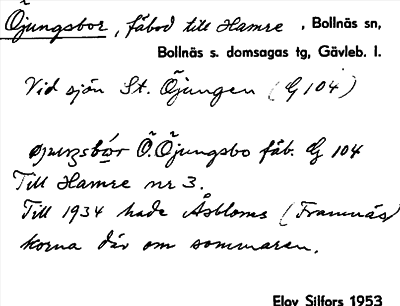 Öjungsbor, fäbod till Hamre, Bollnäs sn,
Bollnäs s. domsagas tg, Gävleb. l.
Vid sjön St. Öjungen (G 104)
øjuŋsbór Ö. Öjungsbo fäb. G 104
Till Hamre nr 3.
Till 1934 hade Åsbloms (Framnäs)
korna där om sommaren.
Elov Silfors 1953